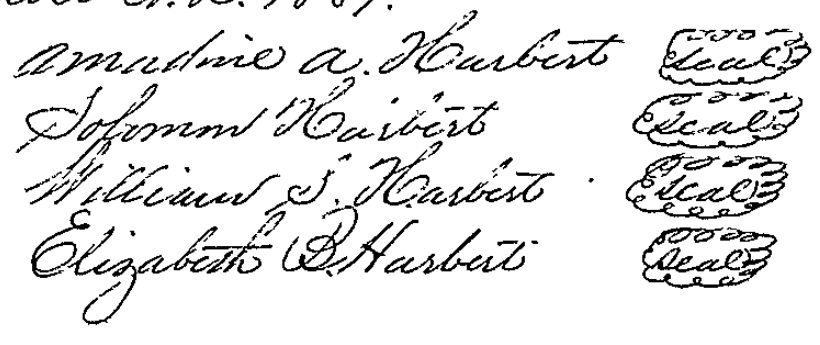 Amadine A. Harbert Seal
Solomon Harbert Seal
William S. Harbert Seal
Elizabeth B. Harbert Seal